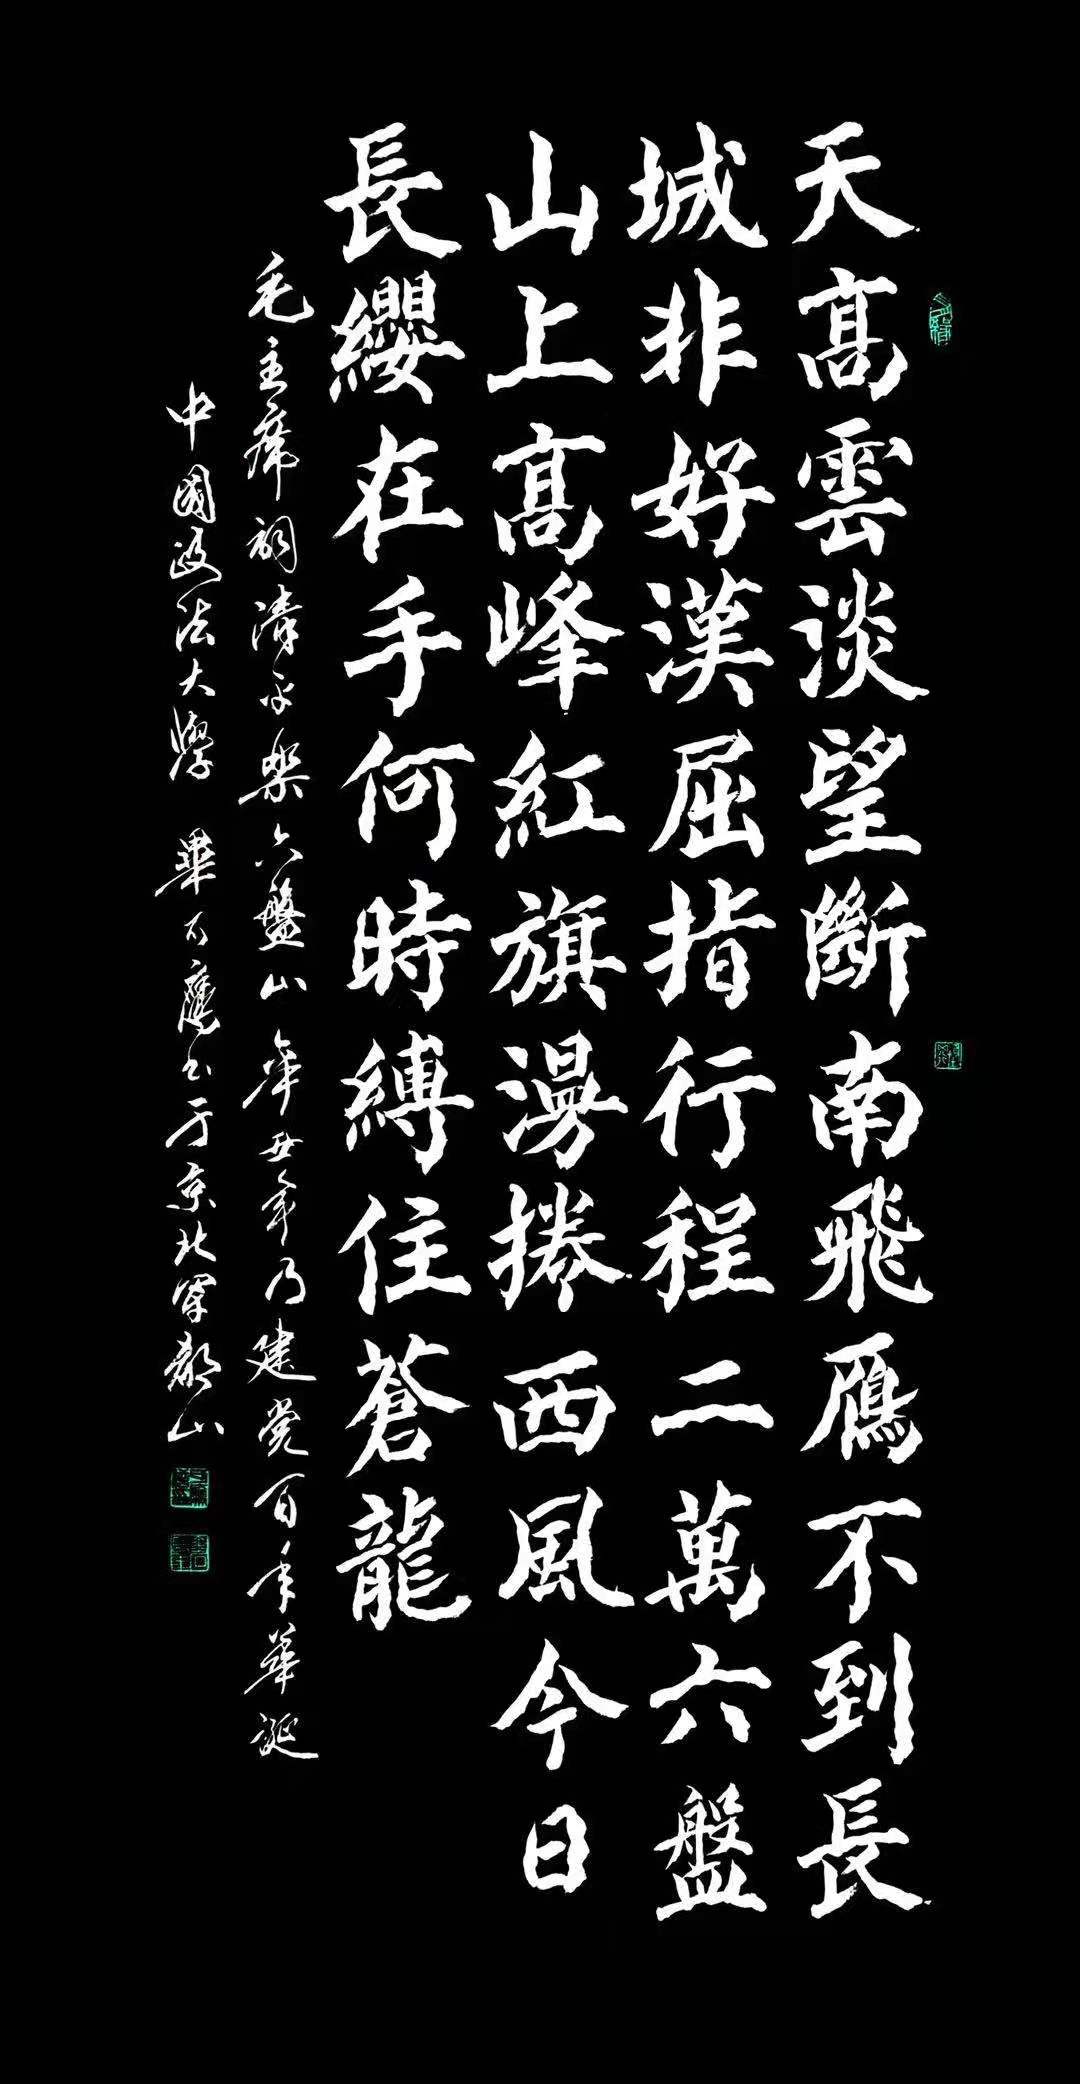 天髙雲淡望斷南飛鴈不到長
城非好漢屈指行程二萬六盤
山上髙峰紅旗漫捲西風今日
長纓在手何時縛住蒼龍
毛主席詞清平樂六盤山 辛丑年乃建党百年華誕
中國政法大學 畢石鷹书于京北軍都山